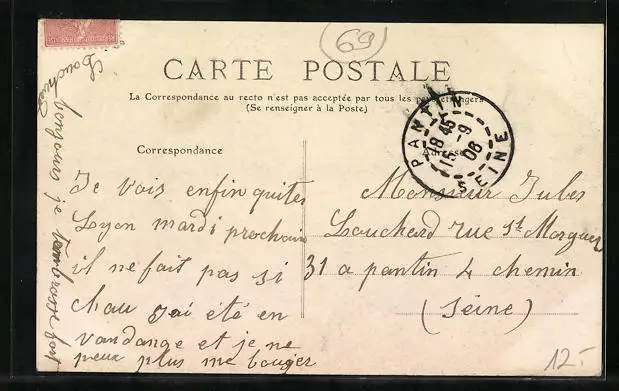 69
CARTE POSTALE
La Correspondance au recto n'est pas acceptée par tous les pays étrangers
(Se renseigner à la Poste)
PANTIN
18 45
15 -9
06
SEINE
Correspondance
Adresse
Je vois enfin quiter
Lyon mardi prochain
il ne fait pas si
chau J'ai été en
vandange et je ne
peux plus me bouger
bonjours je tembrasse fort
Louchard
Monsieur Jules
Louchard rue St Morguer
31 a pantin 4 chemin
(Seine)
12.-